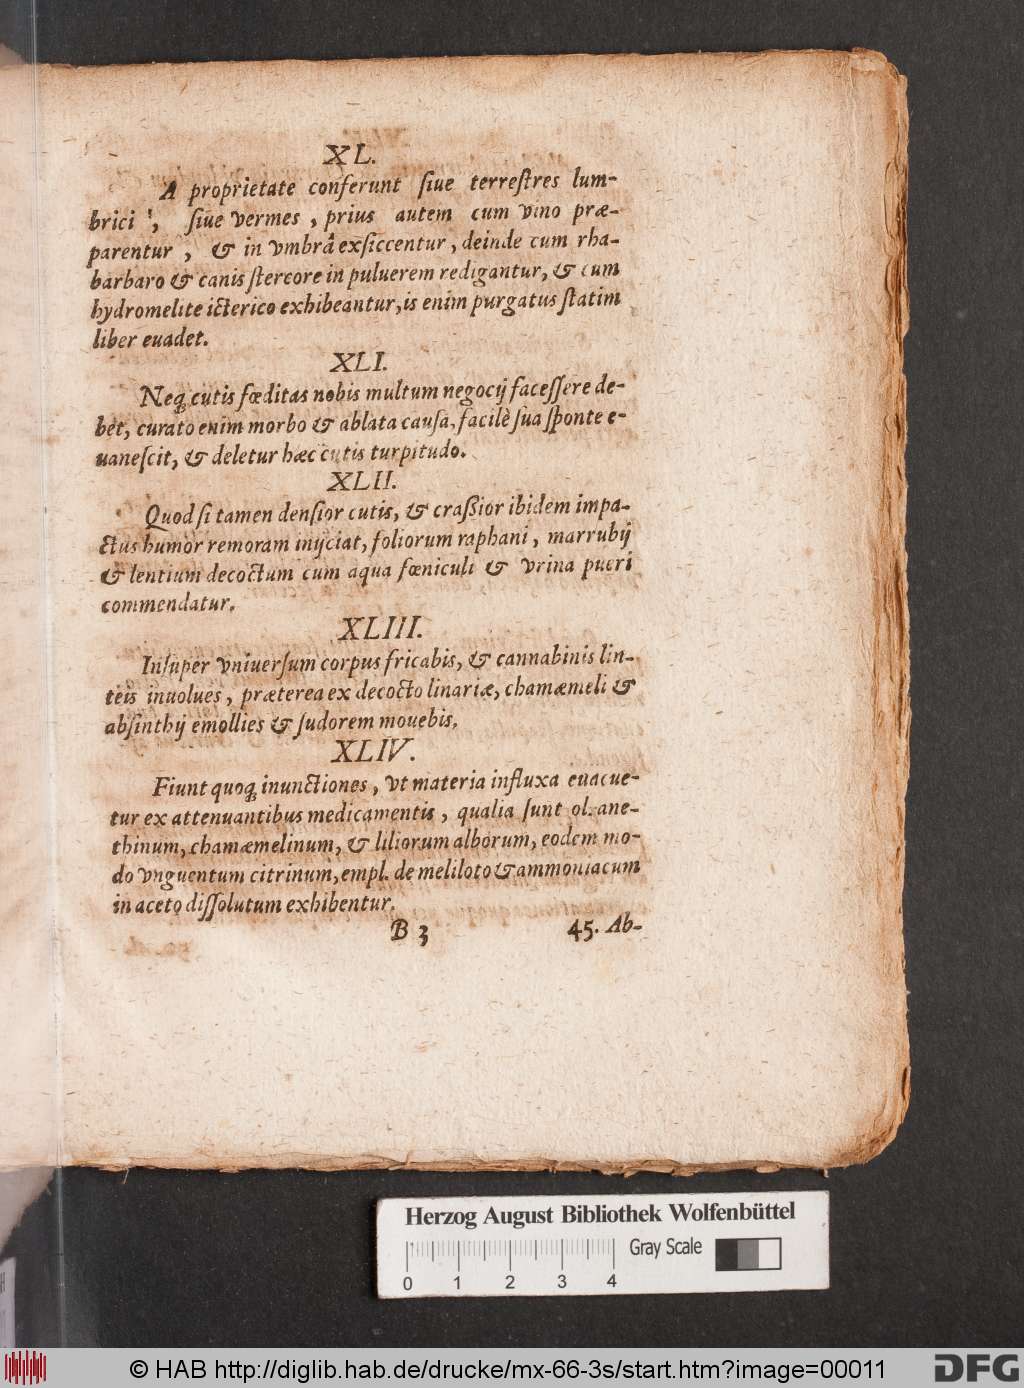 XL.
A proprietate conferunt ſiue terreſtres lum-
brici, ſiue vermes, prius autem cum vino præ-
parentur, & in vmbrâ exſiccentur, deinde cum rha-
barbaro & canis ſtercore in puluerem redigantur, & cum
hydromelite icterico exhibeantur, is enim purgatus ſtatim
liber euadet.
XLI.
Neqꝫ cutis fœditas nobis multum negocij faceſſere de-
bet, curato enim morbo & ablata cauſa, facilè ſua ſponte e-
uaneſcit, & deletur hæc cutis turpitudo.
XLII.
Quod ſi tamen denſior cutis, & craßior ibidem impa-
ctus humor remoram inijciat, foliorum raphani, marrubij
& lentium decoctum cum aqua fœniculi & vrina pueri
commendatur.
XLIII.
Inſuper vniuerſum corpus fricabis, & cannabinis lin-
teis inuolues, præterea ex decocto linariæ, chamæmeli &
abſinthij emollies & ſudorem mouebis.
XLIV.
Fiunt quoqꝫ inunctiones, vt materia influxa euacue-
tur ex attenuantibus medicamentis, qualia ſunt ol. ane-
thinum, chamæmelinum, & liliorum alborum, eodem mo-
do vnguentum citrinum, empl. de meliloto & ammoniacum
in aceto diſſolutum exhibentur.
B 3 45. Ab-
Herzog August Bibliothek Wolfenbüttel
Gray Scale
0 1 2 3 4
© HAB http://diglib.hab.de/drucke/mx-66-3s/start.htm?image=00011
DFG